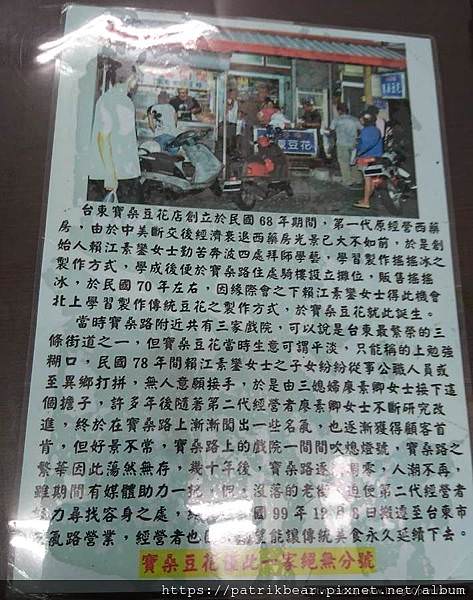 豆花
台東寶桑豆花店創立於民國68年期間，第一代原經營西藥
房，由於中美斷交後經濟衰退西藥房光景已大不如前，於是創
始人賴江素鑾女士勤苦奔波四處拜師學藝，學習製作搖搖冰之
製作方式，學成後便於寶桑路住處騎樓設立攤位，販售搖搖
冰，於民國70年左右，因緣際會之下賴江素鑾女士得此機會
北上學習製作傳統豆花之製作方式，於寶桑豆花就此誕生。
當時寶桑路附近共有三家戲院，可以說是台東最繁榮的三
條街道之一，但寶桑豆花當時生意可謂平淡，只能稱的上勉強
糊口，民國78年間賴江素鑾女士之子女紛紛從事公職人員或
至異鄉打拼，無人意願接手，於是由三媳婦廖素卿女士接下這
個擔子，許多年後隨著第二代經營者廖素卿女士不斷研究改
進，終於在寶桑路上漸漸闖出一些名氣，也逐漸獲得顧客首
肯，但好景不常，寶桑路上的戲院一間間吹熄燈號，寶桑路之
繁華因此蕩然無存，幾十年後，寶桑路逐 凋零，人潮不再，
雖期間有媒體助力一把，但，沒落的老街，迫使第二代經營者
力尋找容身之處， 國99年12月8日搬遷至台東市
氣路營業，經營者也 望能讓傳統美食永久延續下去。
寶桑豆花僅此一家絕無分號
https://patrikbear.pixnet.net/album